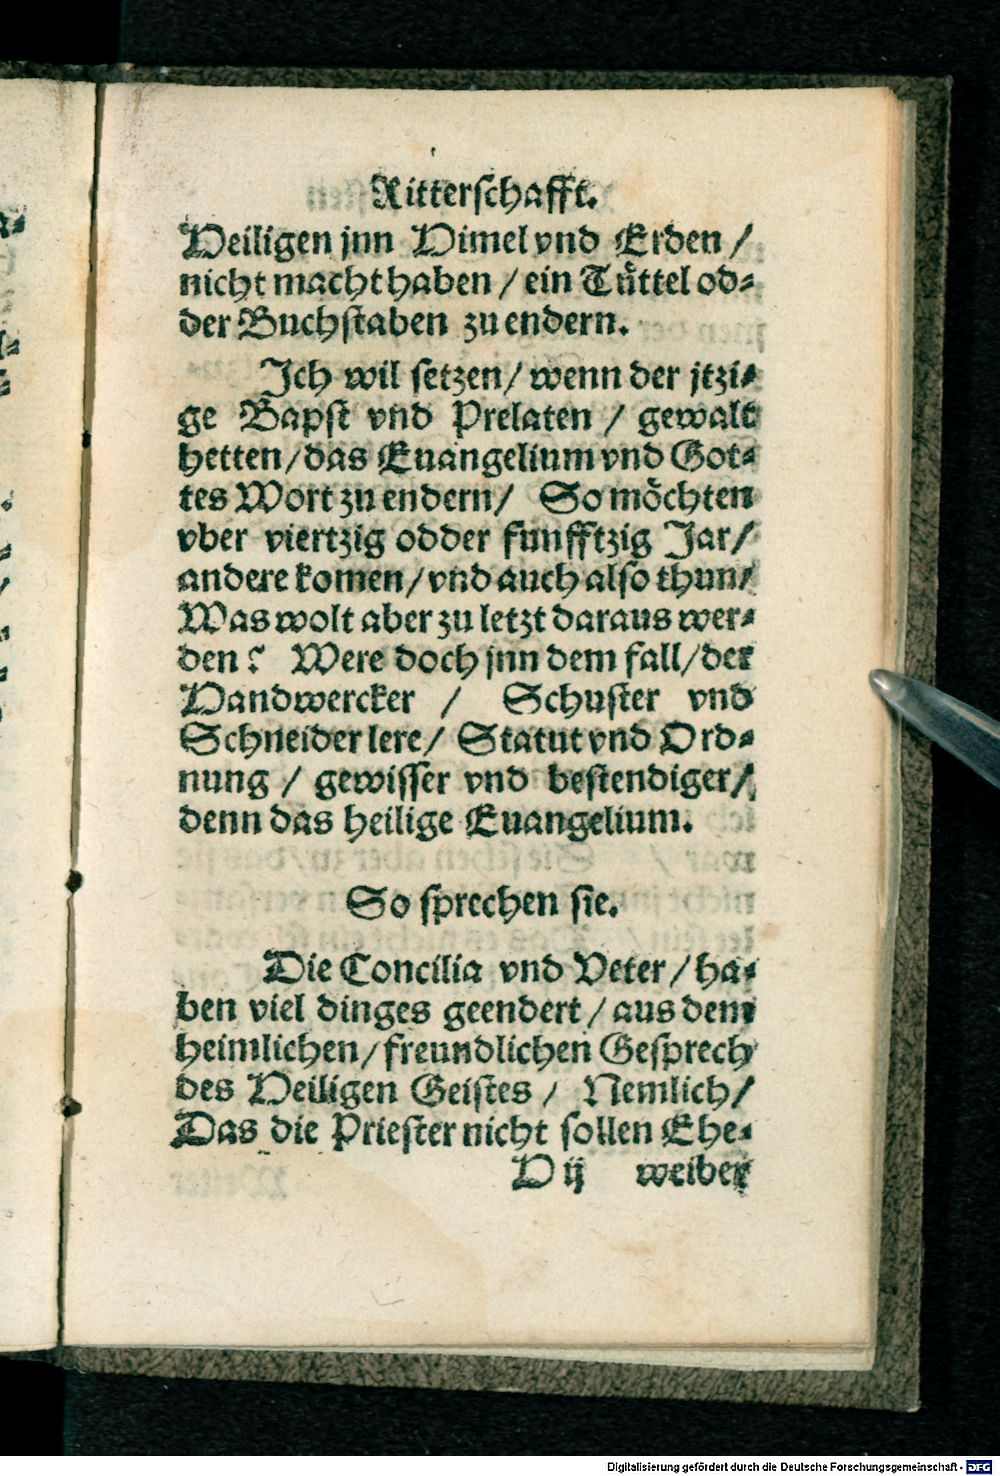 Ritterschafft.
Heiligen jnn Himel vnd Erden /
nicht macht haben / ein Tüttel od⸗
der Buchstaben zu endern.
Jch wil setzen / wenn der jtzi⸗
ge Bapst vnd Prelaten / gewalt
hetten / das Euangelium vnd Got⸗
tes Wort zu endern / So möchten
vber viertzig odder funfftzig Jar /
andere komen / vnd auch also thun /
Was wolt aber zu letzt daraus wer⸗
den? Were doch jnn dem fall / der
Handwercker / Schuster vnd
Schneider lere / Statut vnd Ord⸗
nung / gewisser vnd bestendiger /
denn das heilige Euangelium.
So sprechen sie.
Die Concilia vnd Veter / ha⸗
ben viel dinges geendert / aus dem
heimlichen / freundlichen Gesprech
des Heiligen Geistes / Nemlich /
Das die Priester nicht sollen Ehe⸗
H ij weiber
Digitalisierung gefördert durch die Deutsche Forschungsgemeinschaft - DFG